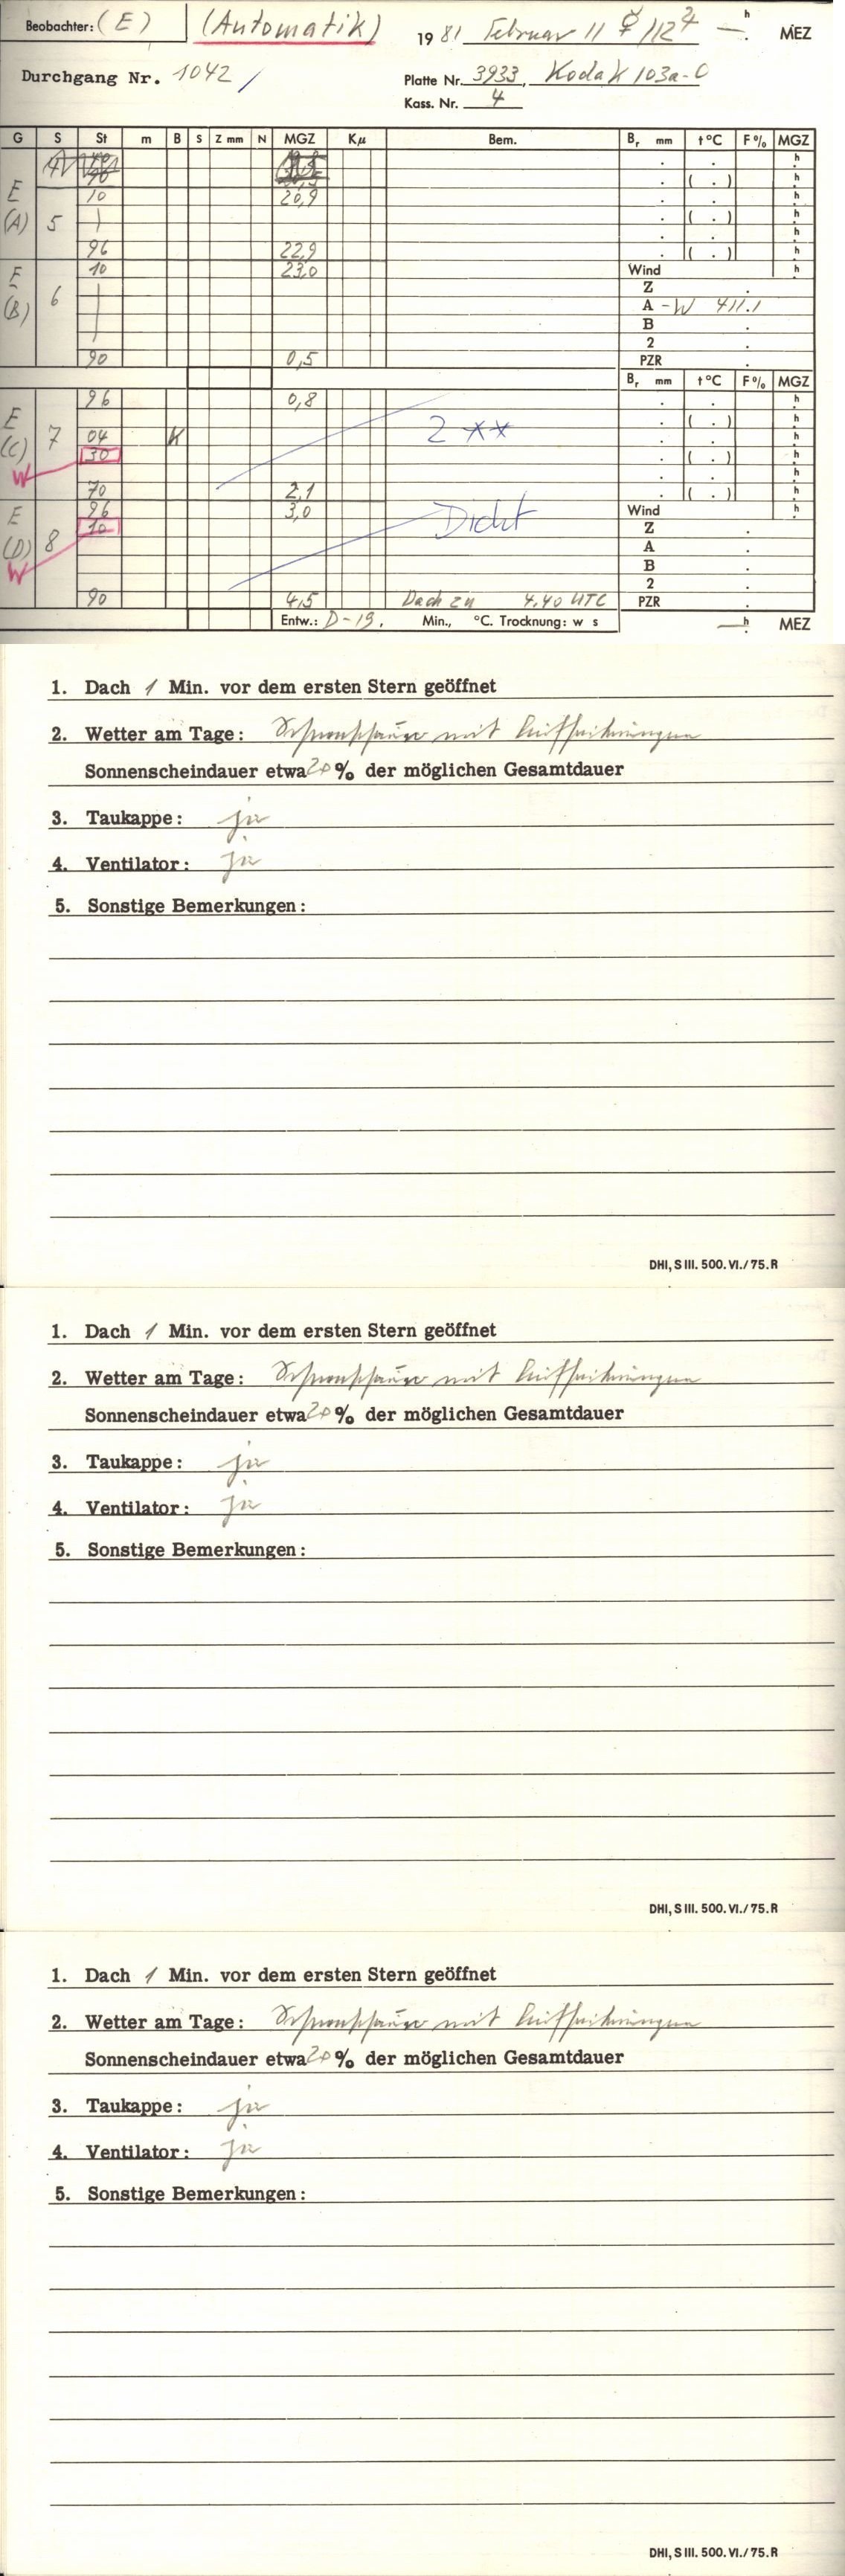 Beobachter: (E) (Automatik) 1981 Februar 11 ☿/12 ♃ — h MEZ
Durchgang Nr. 1042 / Platte Nr. 3933, Kodak 103a-O
Kass. Nr. 4
G S St m B S Z mm N MGZ Kμ Bem. Br mm t°C F% MGZ
. . h
. ( . )
E 10 20,9 . . h
(A) 5 . ( . ) h
. . h
96 22,9 . ( . )
E 10 23,0 Wind h
6 Z .
(B) A - W 411.1
B .
2 .
90 0,5 PZR .
Br mm t°C F% MGZ
96 0,8 . . h
E . ( . ) h
(C) 7 04 K 2 ** . . h
W 30 . ( . ) h
. . h
70 2,1 . ( . ) h
E 96 3,0 Wind h
10 Dicht Z .
(D) 8 A .
W B .
2 .
90 4,5 Dach zu 4.40 UTC PZR .
Entw.: D-19, Min., °C. Trocknung: w s — h MEZ
1. Dach 1 Min. vor dem ersten Stern geöffnet
2. Wetter am Tage: Schneeschauer mit Aufheiterungen
Sonnenscheindauer etwa 20 % der möglichen Gesamtdauer
3. Taukappe: ja
4. Ventilator: ja
5. Sonstige Bemerkungen:
DHI, S III. 500. VI./75. R
1. Dach 1 Min. vor dem ersten Stern geöffnet
2. Wetter am Tage: Schneeschauer mit Aufheiterungen
Sonnenscheindauer etwa 20 % der möglichen Gesamtdauer
3. Taukappe: ja
4. Ventilator: ja
5. Sonstige Bemerkungen:
DHI, S III. 500. VI./75. R
1. Dach 1 Min. vor dem ersten Stern geöffnet
2. Wetter am Tage: Schneeschauer mit Aufheiterungen
Sonnenscheindauer etwa 20 % der möglichen Gesamtdauer
3. Taukappe: ja
4. Ventilator: ja
5. Sonstige Bemerkungen:
DHI, S III. 500. VI./75. R